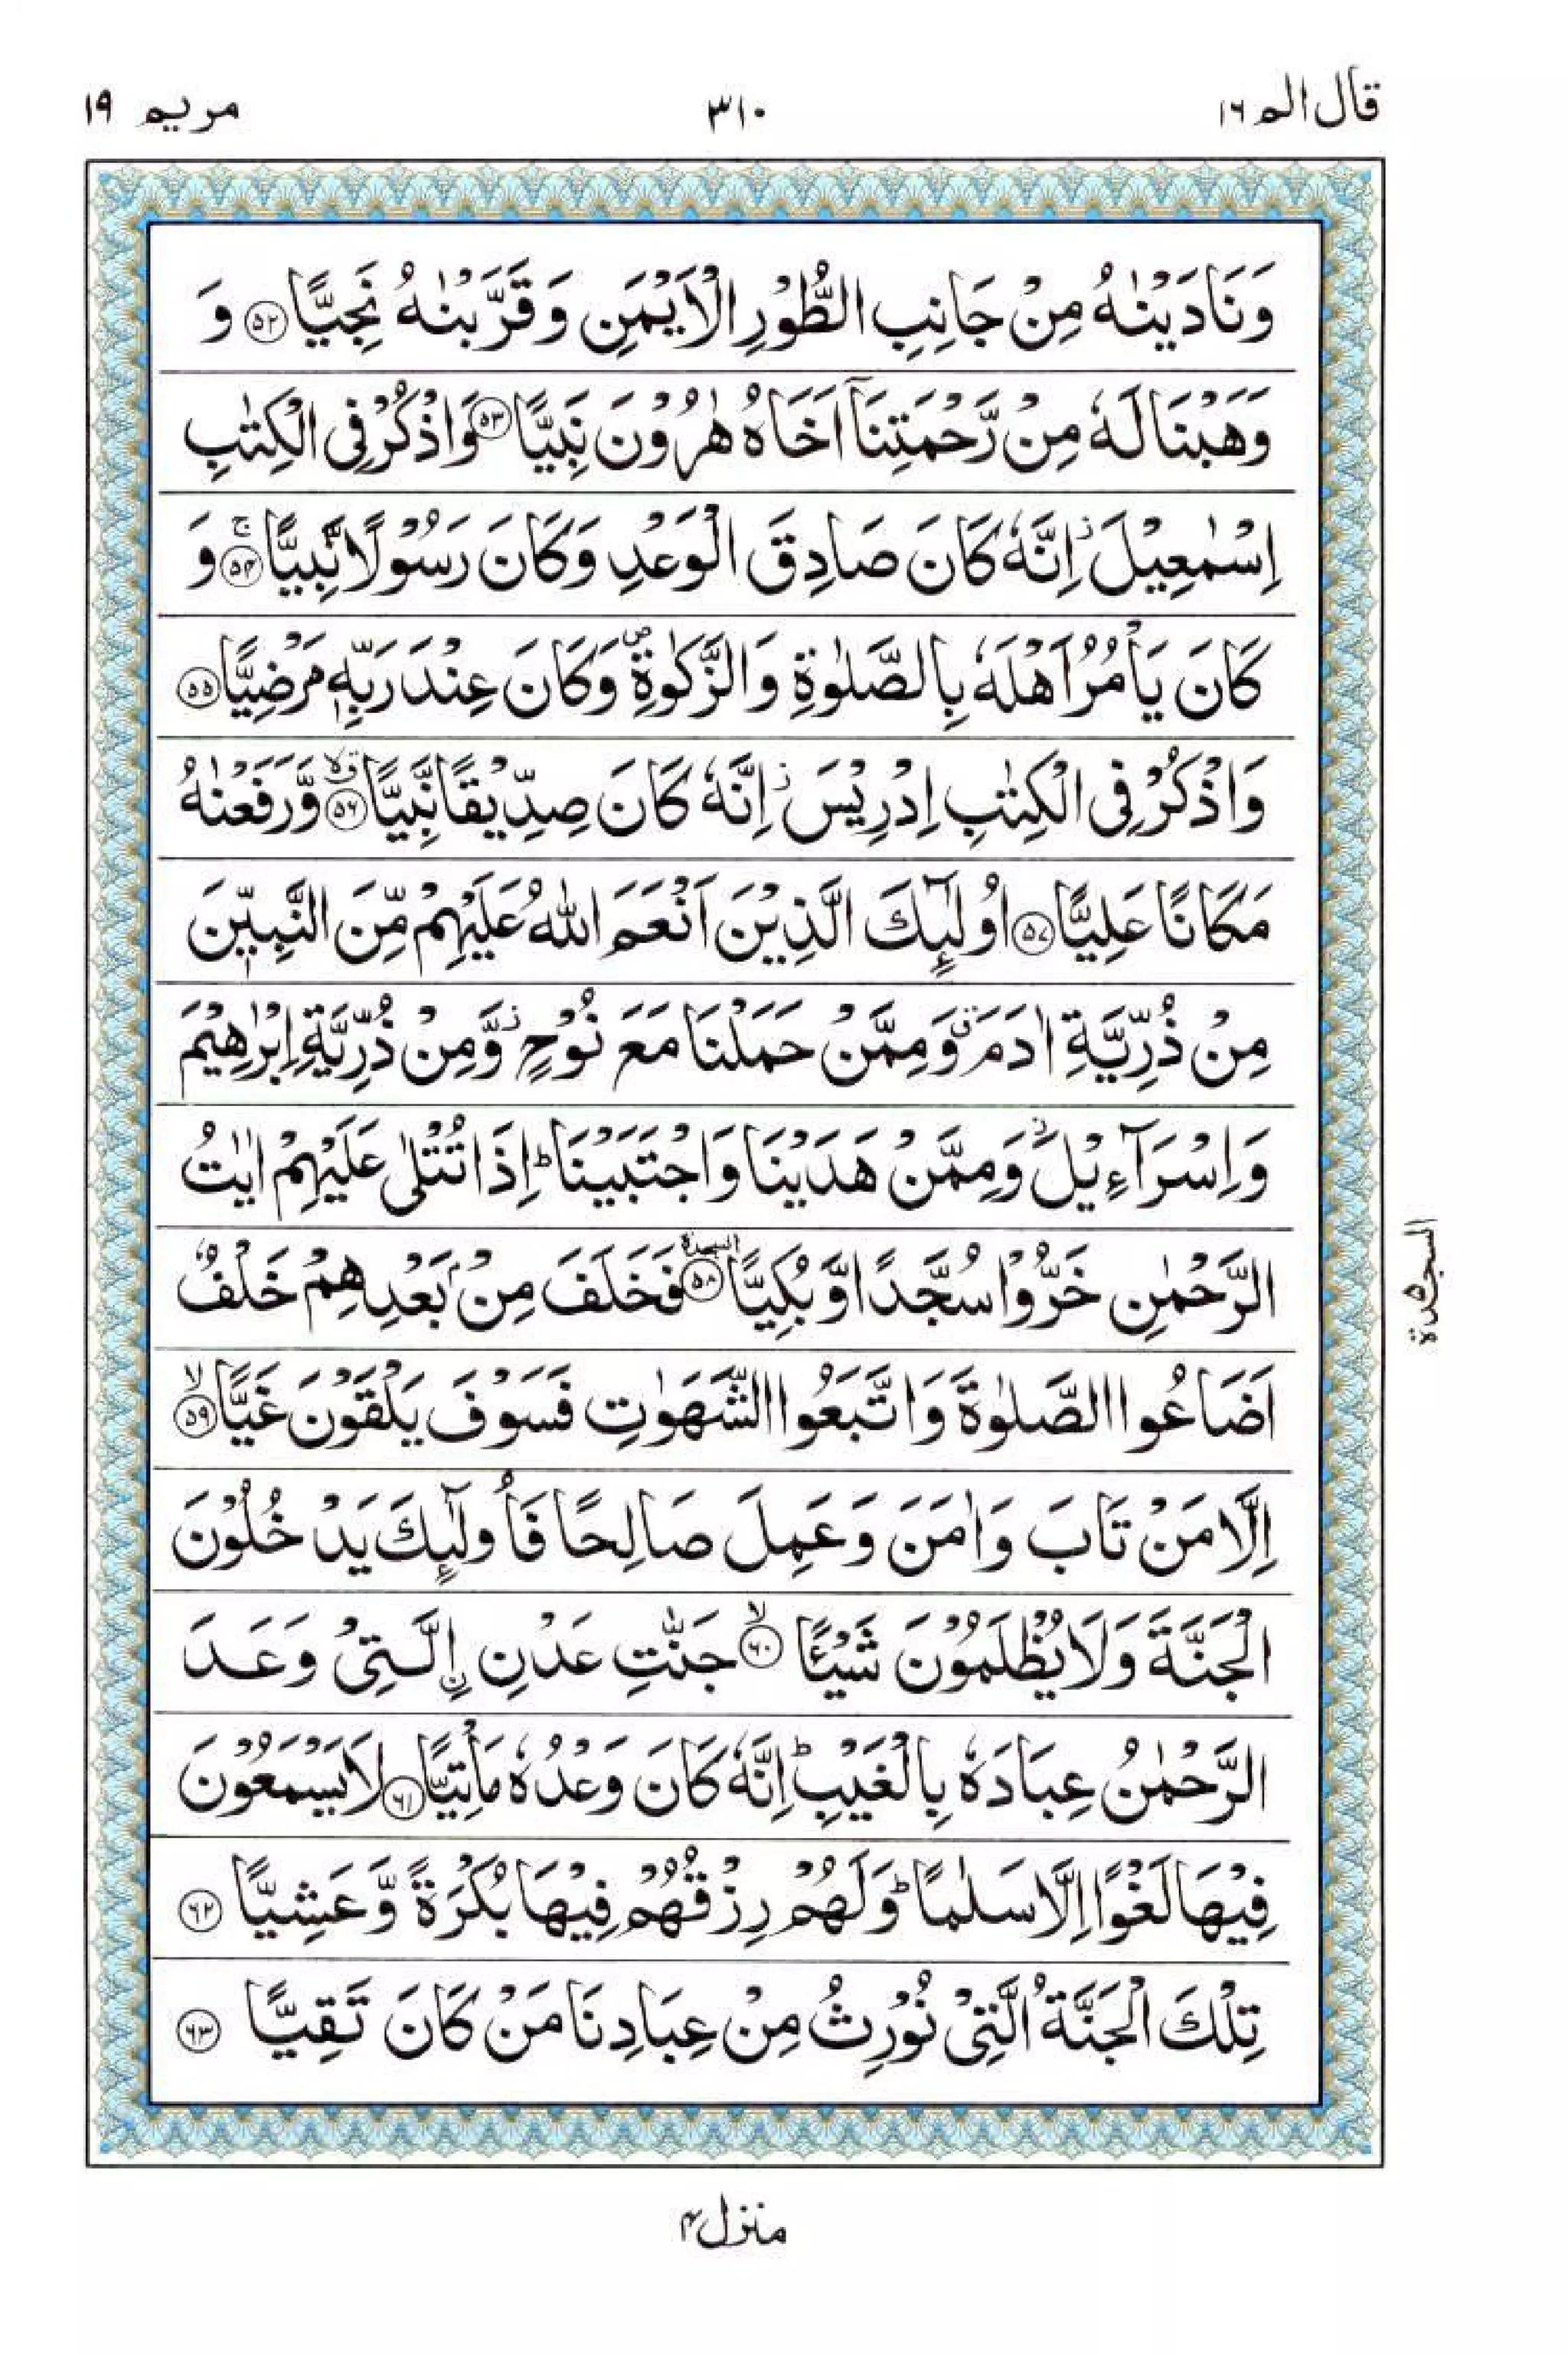 قال الم ١٦
٣١٠
مريم ١٩
وَنَادَيْنٰهُ مِنْ جَانِبِ الطُّوْرِ الْاَيْمَنِ وَقَرَّبْنٰهُ نَجِيًّا ۝۵۲ وَ
وَهَبْنَا لَهٗ مِنْ رَّحْمَتِنَآ اَخَاهُ هٰرُوْنَ نَبِيًّا ۝۵۳ وَاذْكُرْ فِى الْكِتٰبِ
اِسْمٰعِيْلَ ز اِنَّهٗ كَانَ صَادِقَ الْوَعْدِ وَكَانَ رَسُوْلًا نَّبِيًّا ۝۵۴ۚ وَ
كَانَ يَاْمُرُ اَهْلَهٗ بِالصَّلٰوةِ وَالزَّكٰوةِ ص وَكَانَ عِنْدَ رَبِّهٖ مَرْضِيًّا ۝۵۵
وَاذْكُرْ فِى الْكِتٰبِ اِدْرِيْسَ ز اِنَّهٗ كَانَ صِدِّيْقًا نَّبِيًّا ۝۵۶ قلا وَّرَفَعْنٰهُ
مَكَانًا عَلِيًّا ۝۵۷ اُولٰٓئِكَ الَّذِيْنَ اَنْعَمَ اللّٰهُ عَلَيْهِمْ مِّنَ النَّبِيّٖنَ
مِنْ ذُرِّيَّةِ اٰدَمَ ق وَمِمَّنْ حَمَلْنَا مَعَ نُوْحٍ ز وَّمِنْ ذُرِّيَّةِ اِبْرٰهِيْمَ
وَاِسْرَآءِيْلَ ز وَمِمَّنْ هَدَيْنَا وَاجْتَبَيْنَا ط اِذَا تُتْلٰى عَلَيْهِمْ اٰيٰتُ
الرَّحْمٰنِ خَرُّوْا سُجَّدًا وَّبُكِيًّا ۝۵۸ السجدة فَخَلَفَ مِنْۢ بَعْدِهِمْ خَلْفٌ
السجدة ۵
اَضَاعُوا الصَّلٰوةَ وَاتَّبَعُوا الشَّهَوٰتِ فَسَوْفَ يَلْقَوْنَ غَيًّا ۝۵۹ۙ
اِلَّا مَنْ تَابَ وَاٰمَنَ وَعَمِلَ صَالِحًا فَاُولٰٓئِكَ يَدْخُلُوْنَ
الْجَنَّةَ وَلَا يُظْلَمُوْنَ شَيْئًا ۝۶۰ۙ جَنّٰتِ عَدْنِ ࣙالَّتِىْ وَعَدَ
الرَّحْمٰنُ عِبَادَهٗ بِالْغَيْبِ ط اِنَّهٗ كَانَ وَعْدُهٗ مَاْتِيًّا ۝۶۱ لَا يَسْمَعُوْنَ
فِيْهَا لَغْوًا اِلَّا سَلٰمًا ط وَلَهُمْ رِزْقُهُمْ فِيْهَا بُكْرَةً وَّعَشِيًّا ۝۶۲
تِلْكَ الْجَنَّةُ الَّتِىْ نُوْرِثُ مِنْ عِبَادِنَا مَنْ كَانَ تَقِيًّا ۝۶۳
منزل ۴